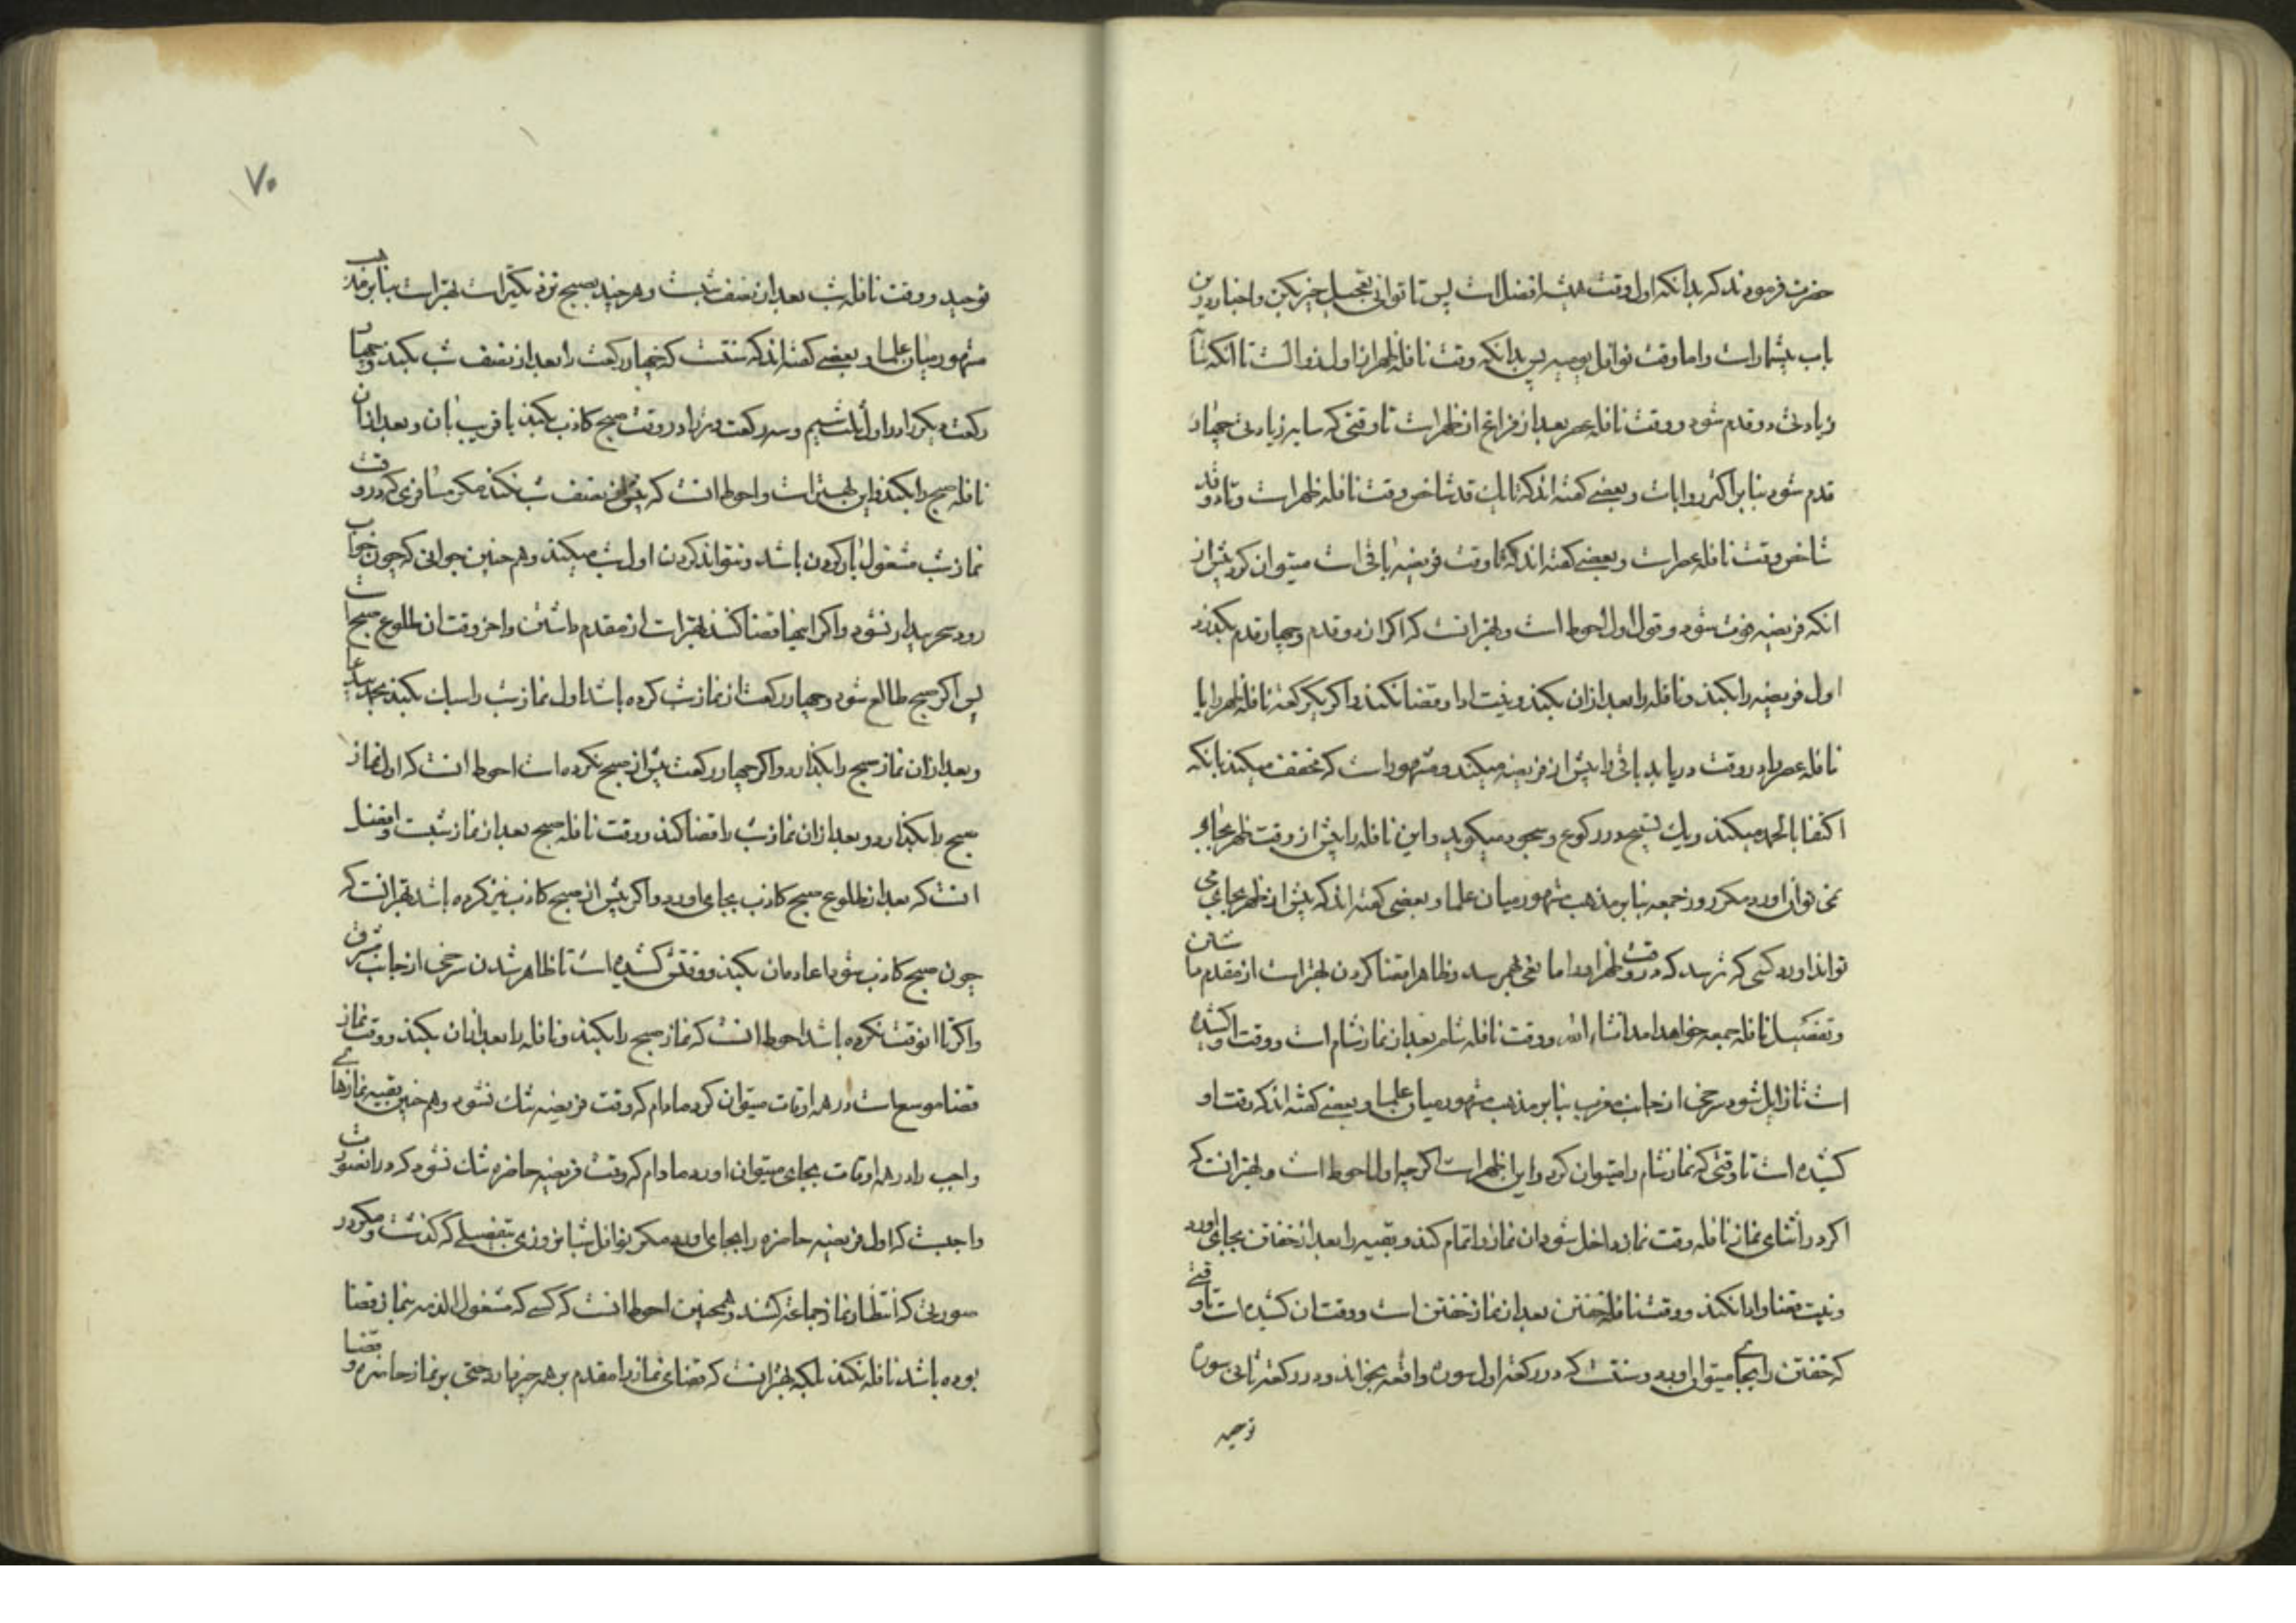 حضرت فرمودند که بدانکه اول وقت همیشه افضل است پس تا توانی تعجیل خیر بکن و اخبار درین
باب بیشمار است و اما وقت نوافل یومیه پس بدانکه وقت نافله ظهر از اول زوالست تا آنکه سایه
زیادتی دو قدم شود و وقت نافله عصر بعد از فراغ از ظهر است تا وقتی که سایه زیادتی چهار
قدم شود بنابر اکثر روایات و بعضی گفته اند که تا یک قد شاخص وقت نافله ظهر است و تا دو قد
شاخص وقت نافله عصر است و بعضی گفته اند که تا وقت فریضه باقی است میتوان کرد پیش از
انکه فریضه فوت شود و قول اول احوط است و بهتر انست که اکر از دو قدم و چهار قدم بگذرد
اول فریضه را بکند و نافله را بعد از آن بکند و نیت ادا و قضا نکند و اکر یکرکعت نافله ظهر را یا
نافله عصر را در وقت دریابد باقی را پیش از فریضه میکند و مشهور است که مخفف میکند بانکه
اکتفا بالحمد میکند و یک تسبیح در رکوع و سجود میکوید و این نافله را پیش از وقت ظهر بجای
نمی توان اورد مکر روز جمعه بنابر مذهب مشهور میان علما و بعضی کفته اند که پیش از ظهر بجای می
تواند اورد کسی که ترسد که در وقت ظهر او را مانعی بهم رسد و ظاهرا قضا کردن بهتر است از مقدم داشتن
و تفصیل نافله جمعه خواهد امد انشاء الله و وقت نافله شام بعد از نماز شام است و وقت او کشیده
است تا زایل شود سرخی از جانب مغرب بنابر مذهب مشهور میان علما و بعضی کفته اند که وقت او
کشیده است تا وقتی که نماز شام را میتوان کرد و این اظهر است اکر چه اول احوط است و بهتر انست که
اکر در اثنای نماز نافله وقت نماز داخل شود ان نماز را تمام کند و بقیه را بعد از خفتن بجای اورد
و نیت قضا و ادا نکند و وقت نافله خفتن بعد از نماز خفتن است و وقت ان کشیده است تا وقتی
که خفتن را بجای میتوان اورد و سنت است که در رکعت اول سوره واقعه بخواند و در رکعت ثانی سوره
توحید
۷۰
توحید و وقت نافله شب بعد از نصف شبست و هر چند بصبح نزدیکتر است بهتر است بنابر مذهب
مشهور میان علما و بعضی کفته اند که سنتست که چهار رکعت را بعد از نصف شب بکند و چهار
رکعت دیکر را در اول ثلث سیم و سه رکعت وتر را در وقت صبح کاذب بکند یا قریب بان و بعد از ان
نافله صبح را بکند و این بهترین است و احوط انست که پیش از نصف شب نکند مکر مسافری که در وقت
نماز شب مشغول بار کردن باشد و نتواند کردن اول شب میکند و هم چنین جوانی که چون بخواب
رود سحر بیدار نشود و اکر اینها قضا کنند بهتر است از مقدم داشتن و اخر وقت ان طلوع صبح است
پس اکر صبح طالع شود و چهار رکعت از نماز شب کرده باشد اول نماز شب را سبک بکند
و بعد از ان نماز صبح را بکذارد و اکر چهار رکعت پیش از صبح نکرده است احوط انست که اول نماز
صبح را بکذارد و بعد از ان نماز شب را قضا کند و وقت نافله صبح بعد از نماز شبست و افضل
انست که بعد از طلوع صبح کاذب بجای اورد و اکر پیش از صبح کاذب نیز کرده باشد بهتر انست که
چون صبح کاذب شود اعاده ان بکند و وقتش کشیده است تا ظاهر شدن سرخی از جانب مشرق
و اکر تا انوقت نکرده باشد احوط انست که نماز صبح را بکند و نافله را بعد از ان بکند و وقت نماز
قضا موسع است در همه اوقات میتوان کرد مادام که وقت فریضه تنک نشود و هم چنین بقیه نمازهای
واجب را در همه اوقات بجای میتوان اورد مادام که وقت فریضه حاضره تنک نشود که در انصورت
واجبست که اول فریضه حاضره را بجای اورد مکر نوافل شبانروزی بتفصیلی که کذشت و مکر در
صورتی که انتظار نماز جماعت کشند و همچنین احوط انست که کسی که مشغول الذمه بنماز قضا
بوده باشد نافله نکند بلکه بهتر انست که قضای نماز را مقدم بر همه چیز دارد حتی بر نماز حاضره و قضا